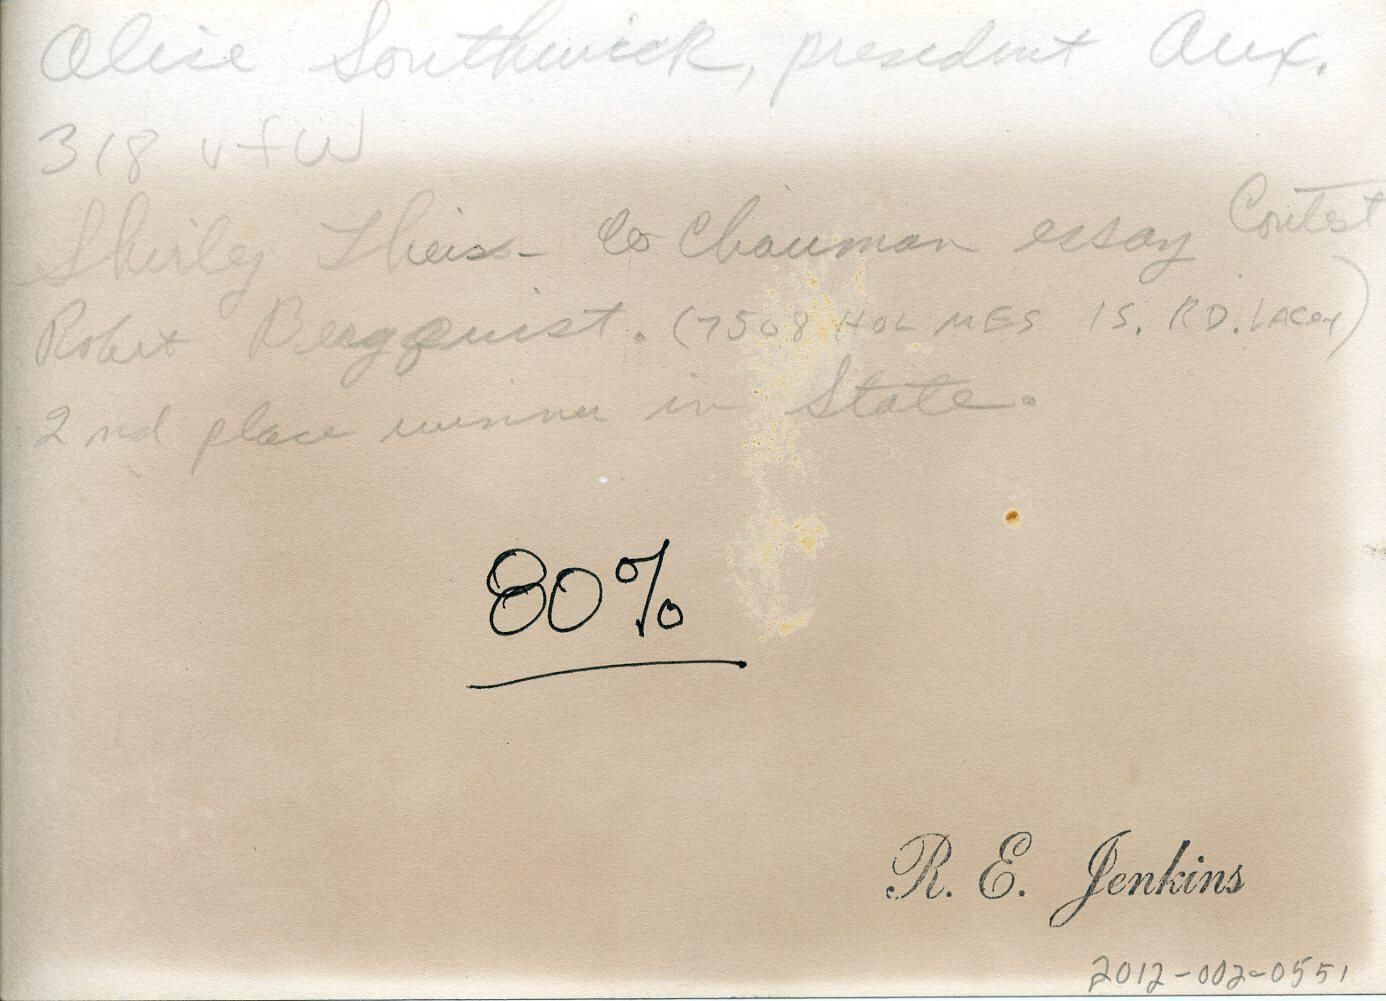 Alice Southwick, president Aux.
318 VFW
Shirley Theis - Co Chairman essay Contest
Robert Bergquist. (7508 HOLMES IS. RD. LACEY)
2nd place winner in State.
80%
R. E. Jenkins
2012-002-0551